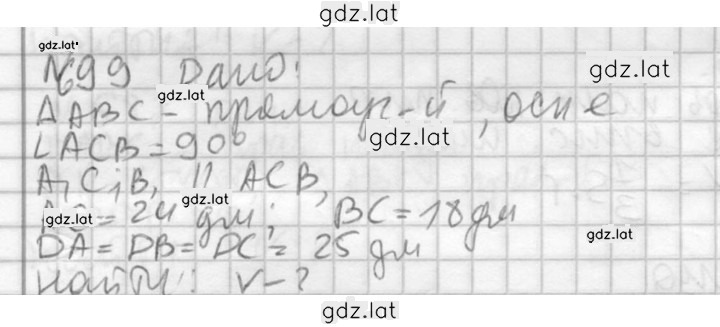 gdz.lat
gdz.lat
№699 Дано:
gdz.lat
gdz.lat
△ABC - прямоуг-й, осн е
∠ACB = 90°
gdz.lat
A₁C₁B₁ || ACB,
gdz.lat
= 24 дм; BC = 18 дм
gdz.lat
gdz.lat
DA = DB = DC = 25 дм
найти: V-?
gdz.lat